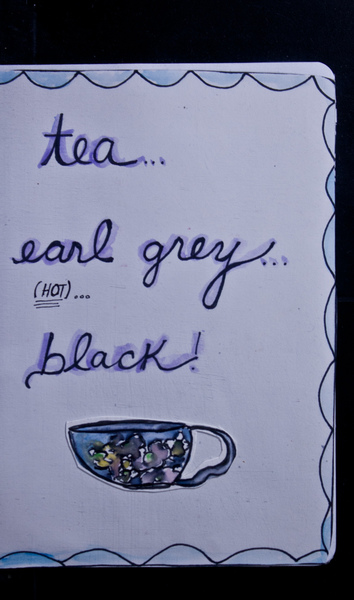 tea...
earl grey...
(HOT)...
black!